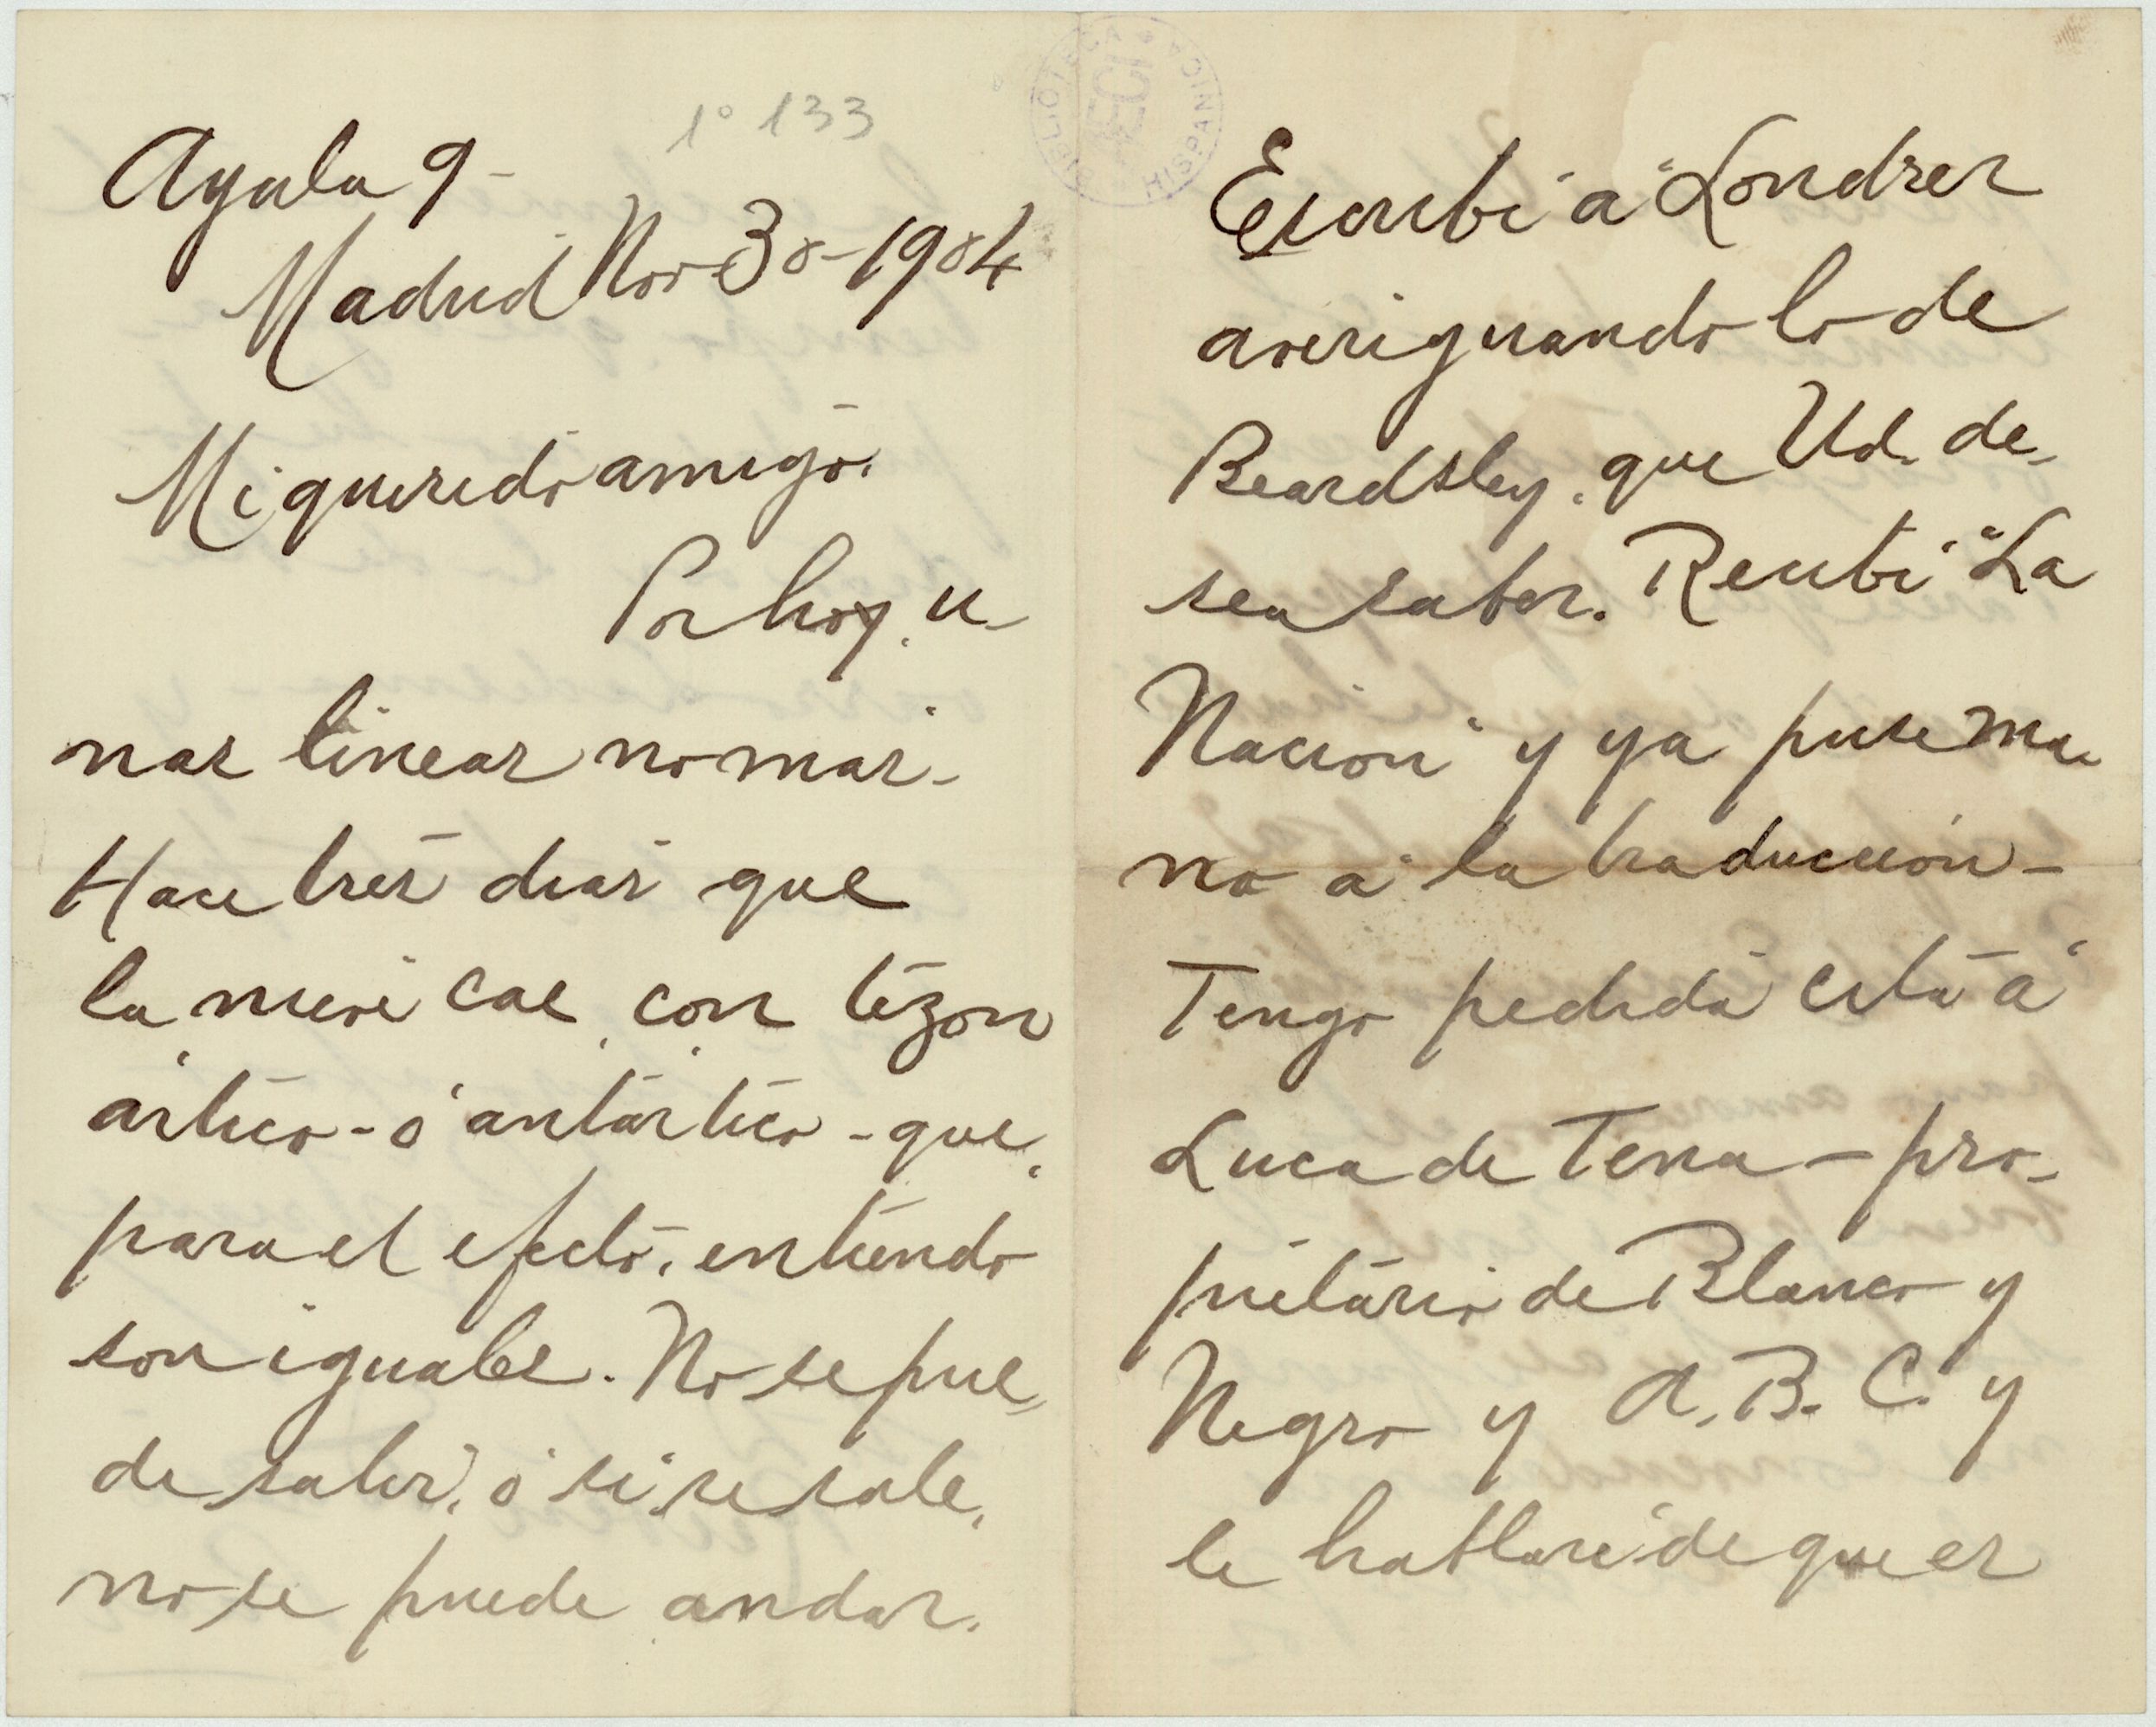 1º 133
BIBLIOTECA HISPANICA
Ayala 9-
Madrid Nov 30-1904
Mi querido amigo.
Por hoy, u-
nas lineas no mas.
Hace tres dias que
la nieve cae, con tezon
ártico - ó antártico - que,
para el efecto, entiendo
son iguales. No se pue-
de salir, ó si se sale,
no se puede andar.
Escribi á Londres
averiguando lo de
Beardsley, que Ud. de-
sea saber. Recibi "La
Nacion" y ya puse ma-
no a la traduccion-
Tengo pedida cita á
Luca de Tena - pro-
pietario de Blanco y
Negro y A. B. C. y
le hablaré de que es